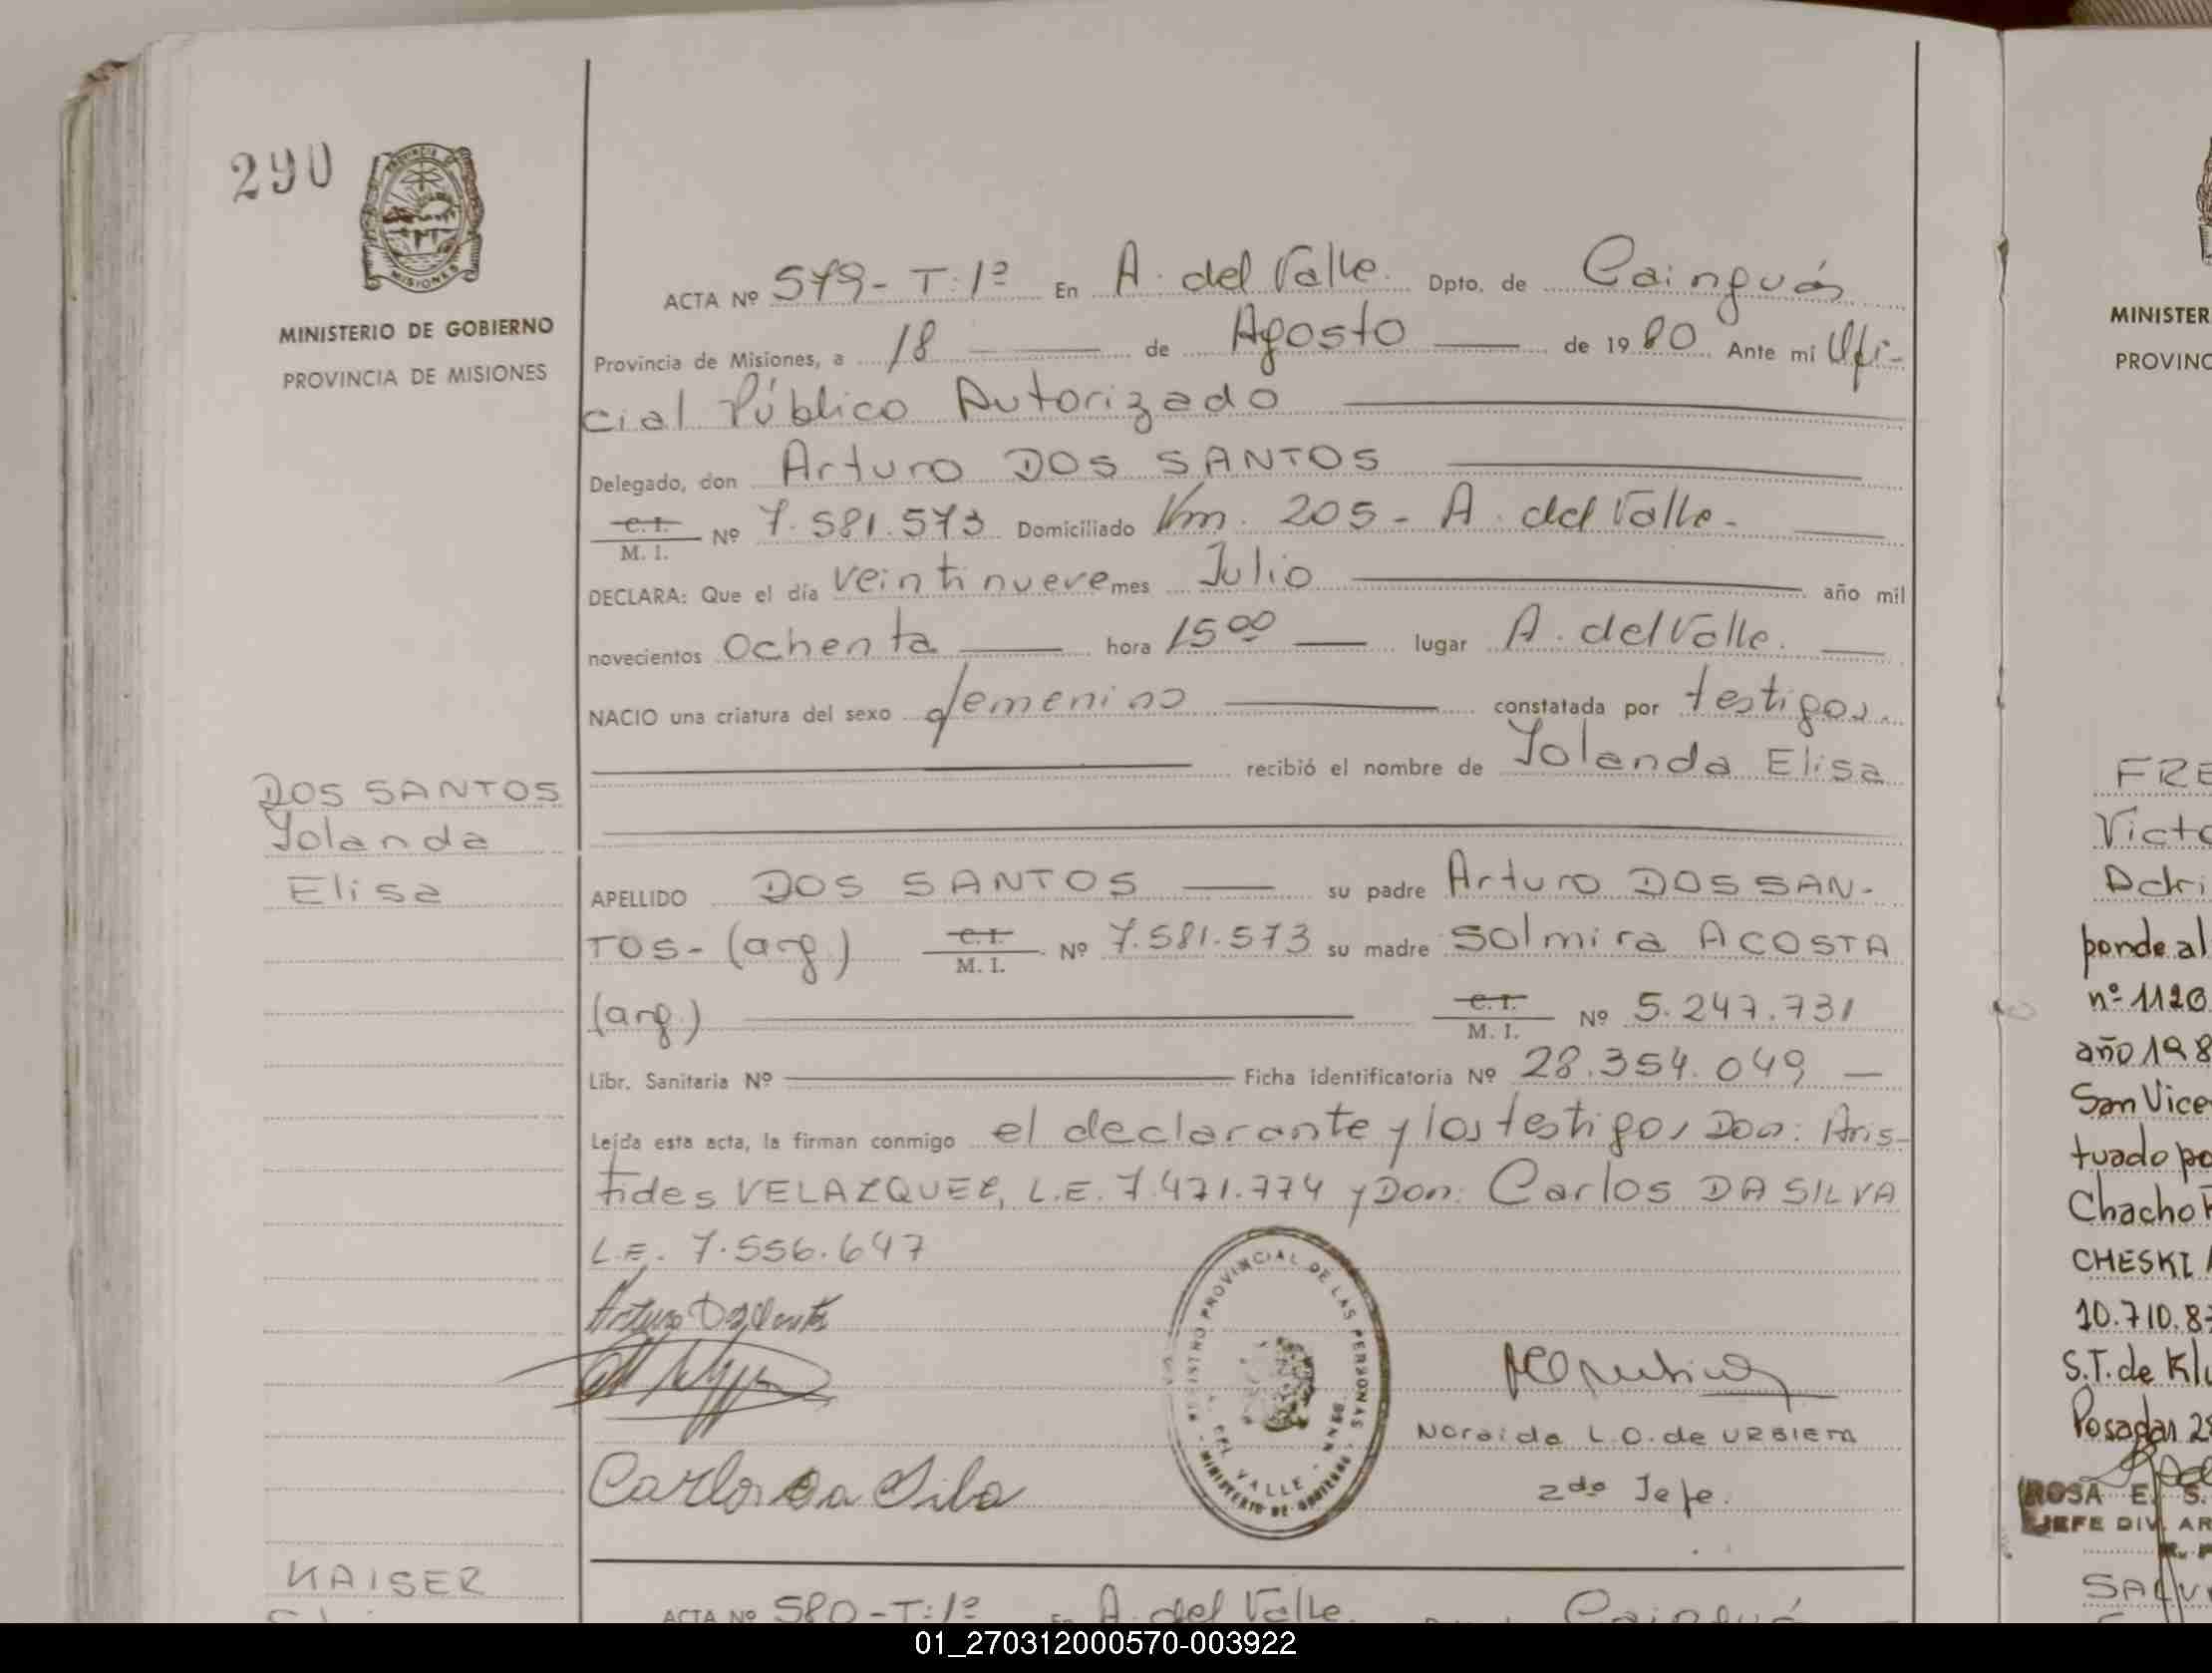 290
PROVINCIA DE
MISIONES
MINISTERIO DE GOBIERNO
PROVINCIA DE MISIONES
DOS SANTOS
Yolanda
Elisa
KAISER
ACTA Nº 579- T:1º En A. del Valle. Dpto. de Cainguás
Provincia de Misiones, a 18 — de Agosto — de 1980 Ante mi Ofi-
cial Público Autorizado
Delegado, don Arturo DOS SANTOS
C. I.
M. I. Nº 7.581.573 Domiciliado Km. 205 - A. del Valle -
DECLARA: Que el día veintinueve mes Julio — año mil
novecientos ochenta — hora 15 00 — lugar A. del Valle. —
NACIO una criatura del sexo femenino — constatada por testigos.
— recibió el nombre de Yolanda Elisa
APELLIDO DOS SANTOS — su padre Arturo DOS SAN-
TOS- (arg.) C. I. M. I. Nº 7.581.573 su madre Solmira ACOSTA
(arg.) — C. I. M. I. Nº 5.247.731
Libr. Sanitaria Nº — Ficha identificatoria Nº 28.354.049 —
Leída esta acta, la firman conmigo el declarante y los testigos Don: Aris-
tides VELAZQUEZ, L.E. 7.471.774 y Don: Carlos DA SILVA
L.E. 7.556.647
REGISTRO PROVINCIAL DE LAS PERSONAS
DEL VALLE - MNES.
MINISTERIO DE GOBIERNO
Noraida L.O. de URBIETA
2do Jefe.
Carlos Da Silva
ACTA Nº 580-T:1º En A. del Valle. Cainguá
MINISTER
PROVINC
FRE
Victo
Adri
ponde al
nº 1120
año 198
San Vice
tuado po
Chacho
CHESKI
10.710.8
S.T. de Klu
Posadas 28
ROSA E. S.
JEFE DIV. AR
01_270312000570-003922